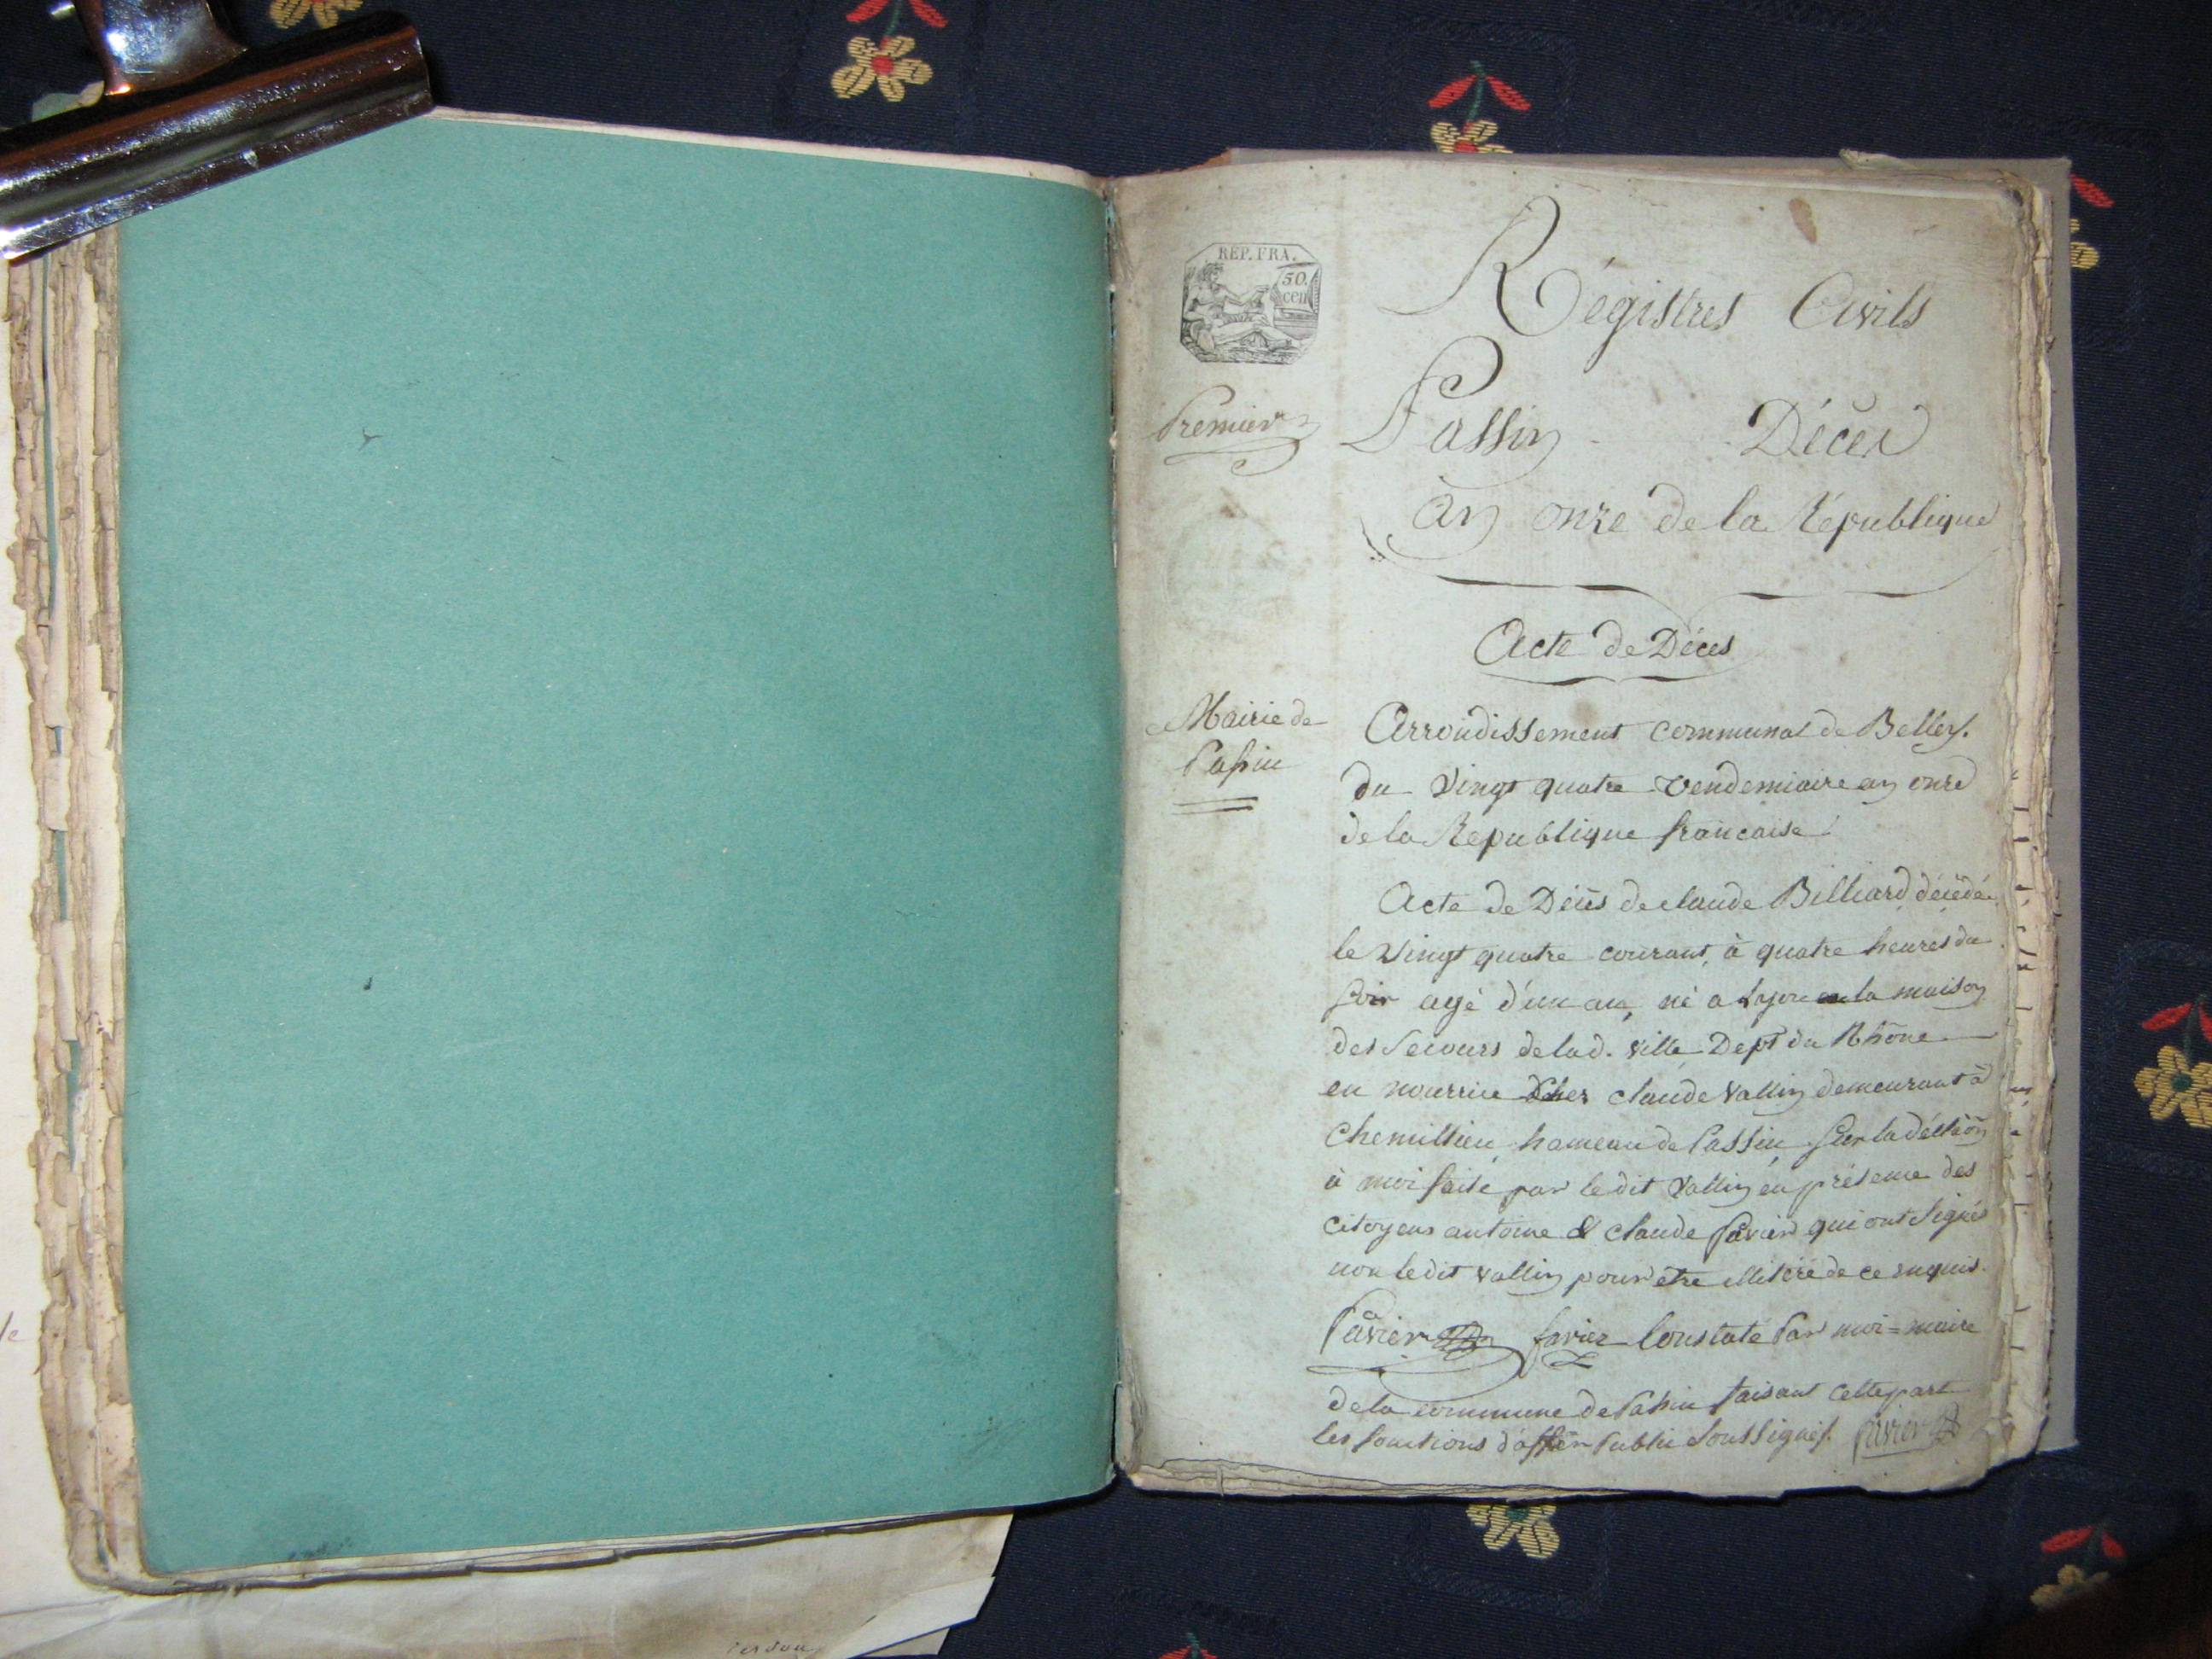 REP. FRA.
50.
cen
Régistres Civils
Premier
Passin - Décès
an onze de la République
Acte de Déces
Mairie de
Passin
Arrondissement communal de Belley.
du vingt quatre vendemiaire an onze
de la République francaise
Acte de Décès de claude Billiard, décédé
le vingt quatre courant, à quatre heures du
soir agé d'un an, né a Lyon la maison
des Secours de lad. ville Dept du Rhône
en nourrice chez claude vallin demeurant à
Chemillieu, hameau de Passin, sur la déclaòn
à moi faite par le dit vallin en présence des
citoyens antoine & claude Pavier qui ont signés
non le dit vallin pour être illiteré de ce enquis.
Pavier favier Constaté Par moi = maire
de la commune de Passin faisant cette part
les fonctions d'offer Public soussignés. favier